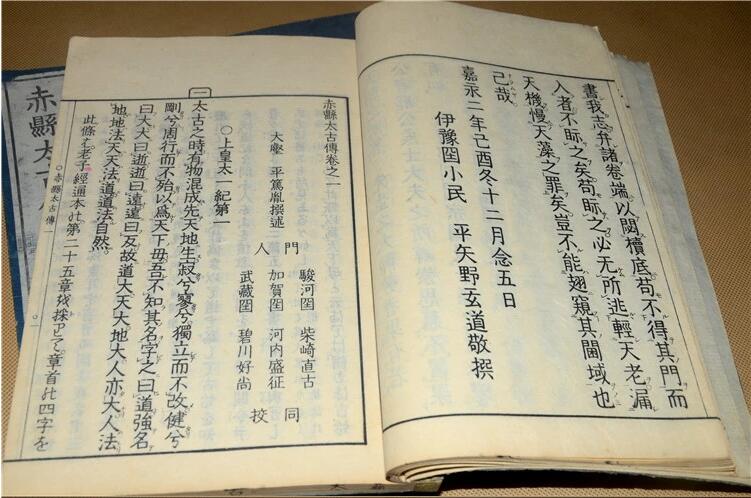 書我志弁諸卷端以閟櫝底苟不得其門而
入者不眎之矣苟眎之必无所逃輕天老漏
天機慢天藻之罪矣豈不能翅窺其閫域也
己哉
嘉永二年己酉冬十二月念五日
伊豫圀小民 平矢野玄道敬撰
赤縣太古傳卷之一
大壑 平篤胤撰述
門人
駿河圀 柴崎直古
加賀圀 河内盛征
武藏圀 碧川好尚
同校
○上皇太一紀第一
一
太古之時有物混成先天地生寂兮寥兮獨立而不改健兮
剛兮周行而不殆以爲天下毋吾不知其名字之曰道強名
曰大大曰逝逝曰遠遠曰反故道大天大地大人亦大人法
地地法天天法道道法自然
此條ハ老子經通本ノ第二十五章殘採レリ
○赤縣太古傳一
赤縣太古